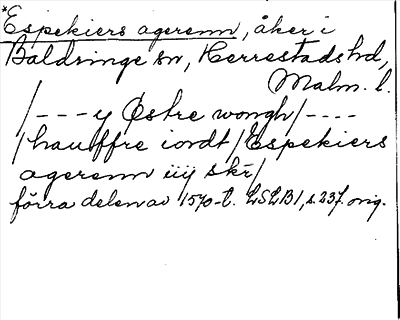 *Espekiers agerenn, åker i
Baldringe sn, Herrestads hd,
Malm. l.
/---y Østre wongh/----
/hauffre iordt/Espekiers
agerenn iiij skr/
förra delen av 1570-t. LSLB1, s. 237. orig.